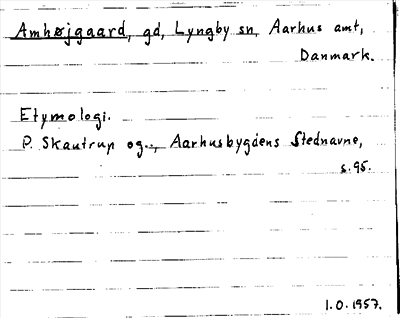 Amhøjgaard, gd, Lyngby sn, Aarhus amt,
Danmark.
Etymologi.
P. Skautrup og.., Aarhusbygdens Stednavne,
s.95.
1.0.1957.